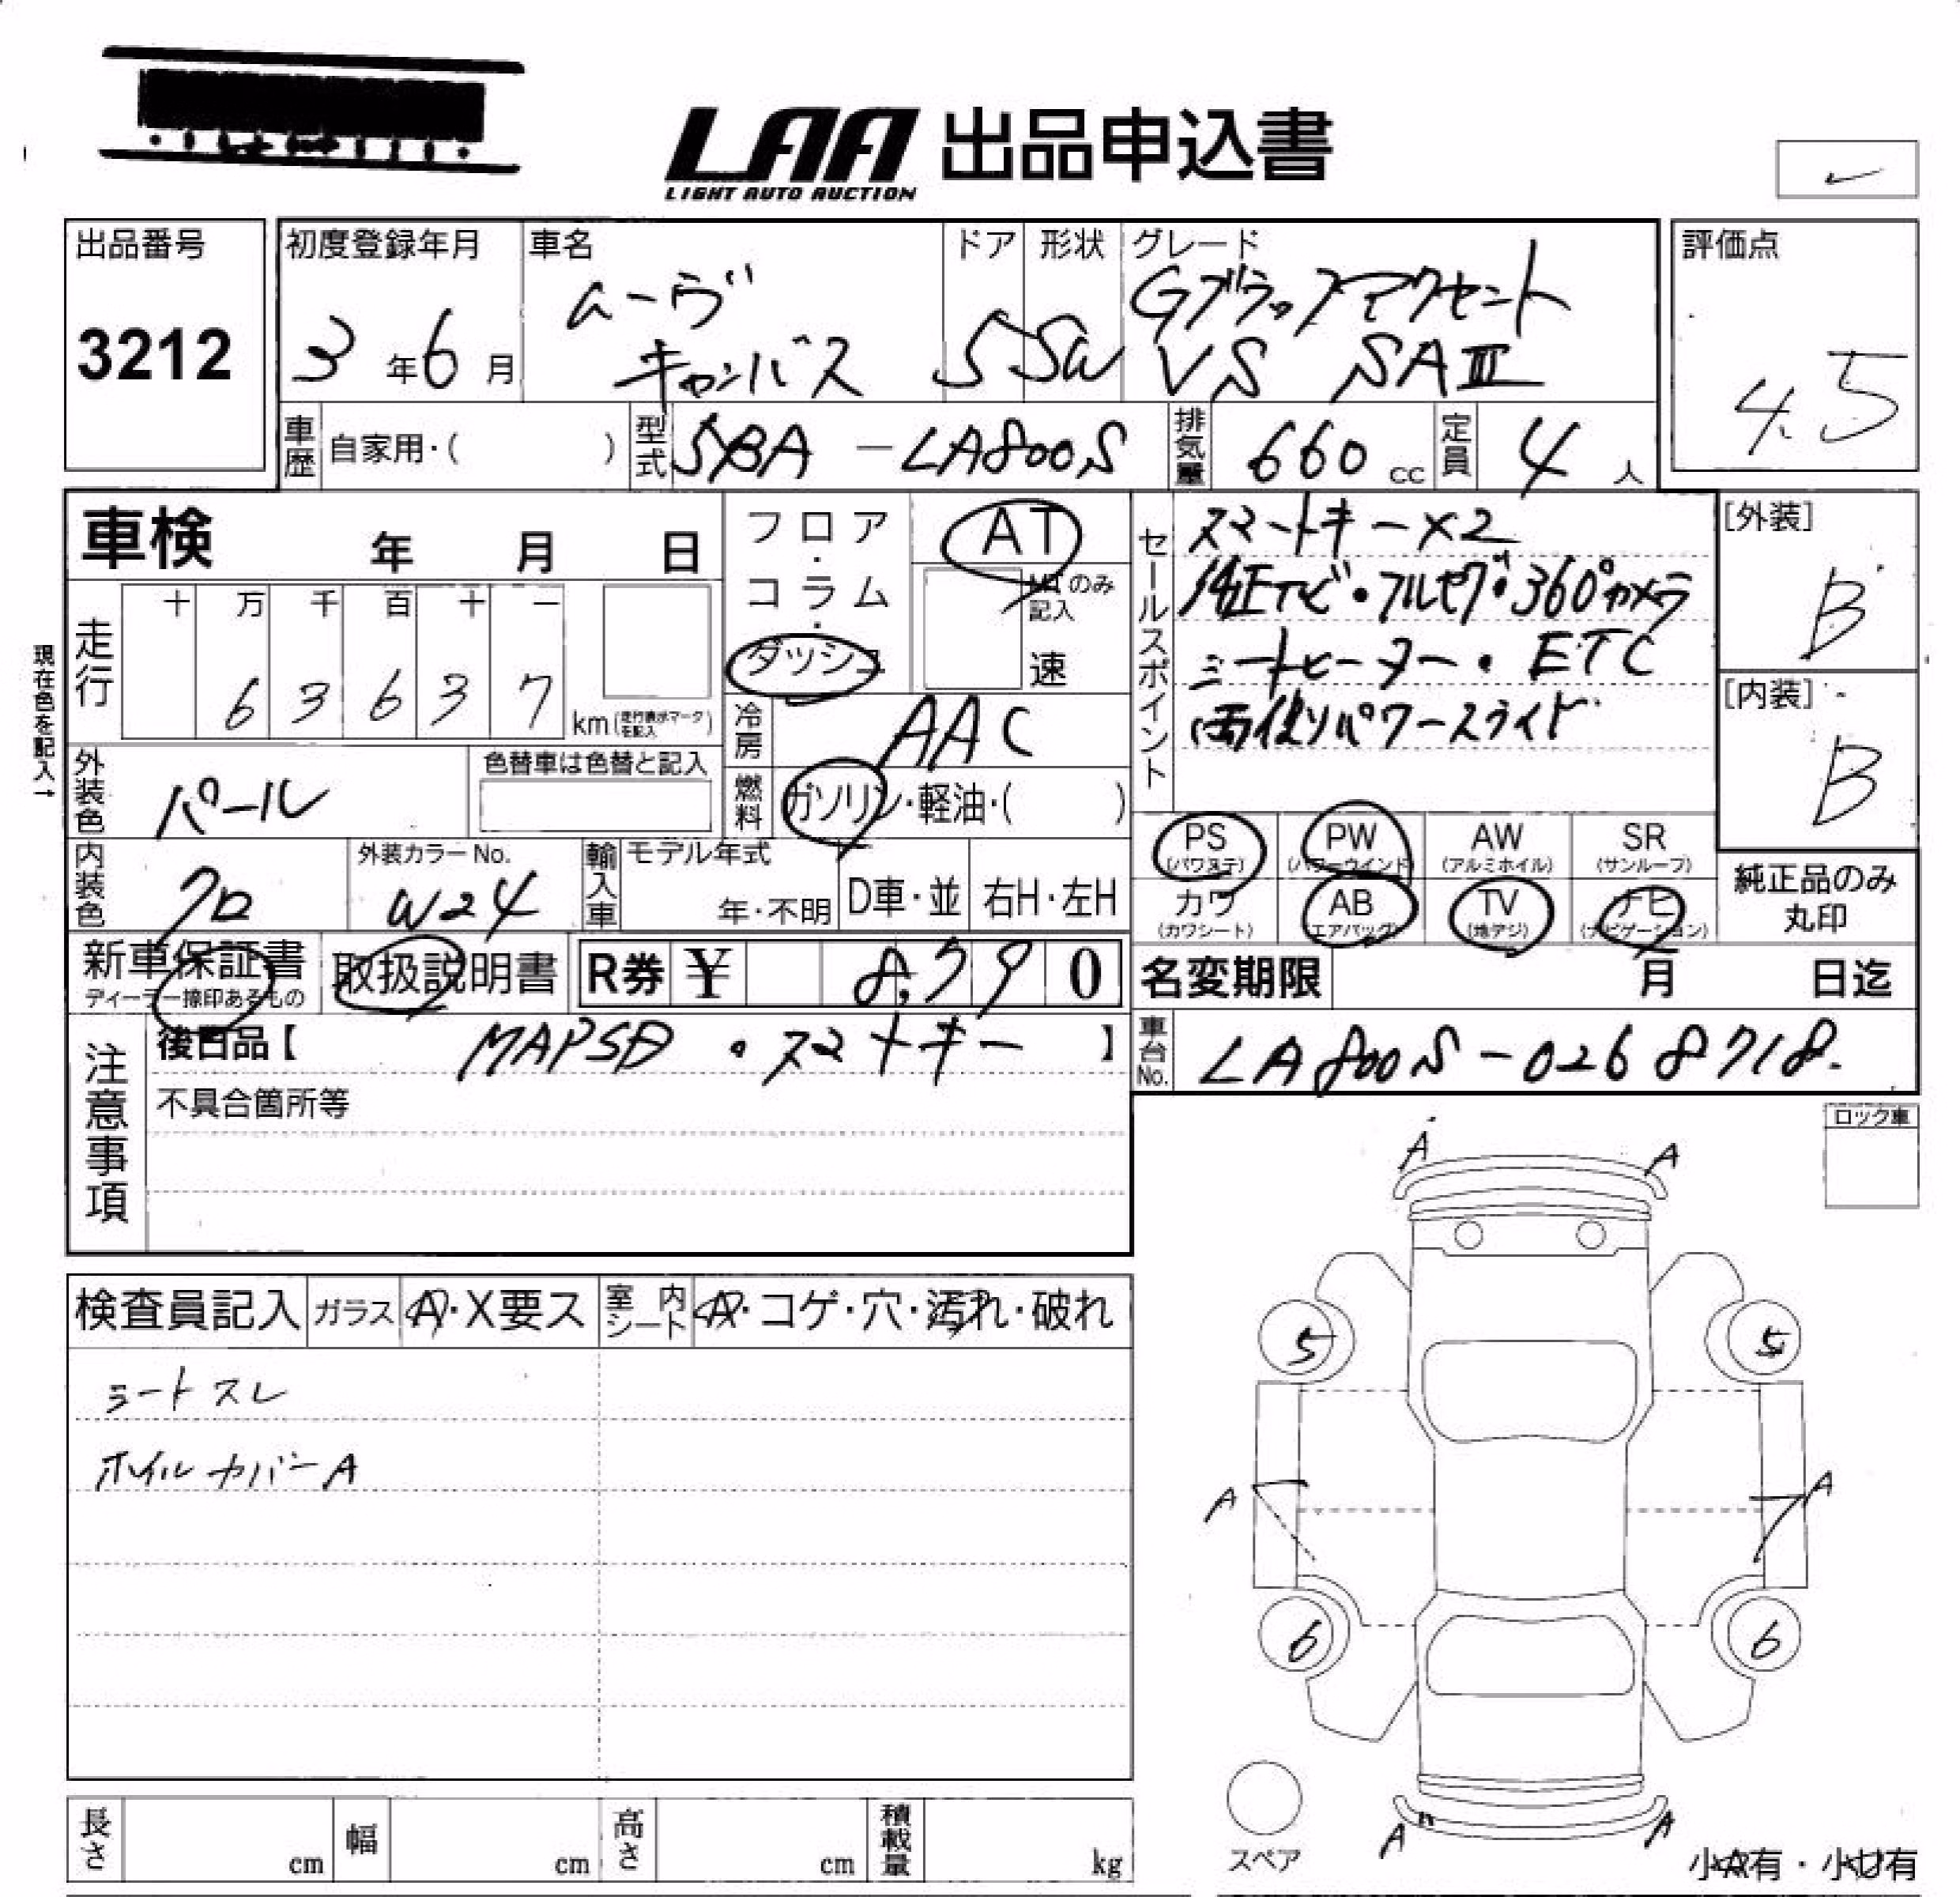 LAA 出品申込書
LIGHT AUTO AUCTION
出品番号
3212
初度登録年月
3年6月
車名
ムーヴ
キャンバス
ドア
5
形状
SW
グレード
Gブラックアクセント
VS SAⅢ
評価点
4.5
車歴
自家用・( )
型式
5BA-LA800S
排気量
660cc
定員
4人
車検 年 月 日
フロア・コラム・ダッシュ
AT
MTのみ記入
速
走行
十 万 千 百 十 一
6 3 6 3 7
km(走行表示マークを記入)
現在色を記入→
冷房
AAC
燃料
ガソリン・軽油・( )
外装色
パール
色替車は色替と記入
内装色
クロ
外装カラーNo.
W24
輸入車
モデル年式
年・不明
D車・並
右H・左H
セールスポイント
スマートキー×2
純正ナビ・フルセグ・360°カメラ
シートヒーター・ETC
両側パワースライド
[外装]
B
[内装]
B
PS
(パワステ)
PW
(パワーウインド)
AW
(アルミホイル)
SR
(サンルーフ)
カワ
(カワシート)
AB
(エアバッグ)
TV
(地デジ)
ナビ
(ナビゲーション)
純正品のみ
丸印
新車保証書
ディーラー捺印あるもの
取扱説明書
R券 ¥ 8,790
名変期限 月 日迄
車台No.
LA800S-0268718.
注意事項
後日品【 MAPSD・スマートキー 】
不具合箇所等
ロック車
検査員記入
ガラス
A・X要ス
室内シート
A・コゲ・穴・汚れ・破れ
シートスレ
ホイルカバーA
A A
5 5
A A
6 6
A A
スペア
小A有・小U有
長さ cm
幅 cm
高さ cm
積載量 kg